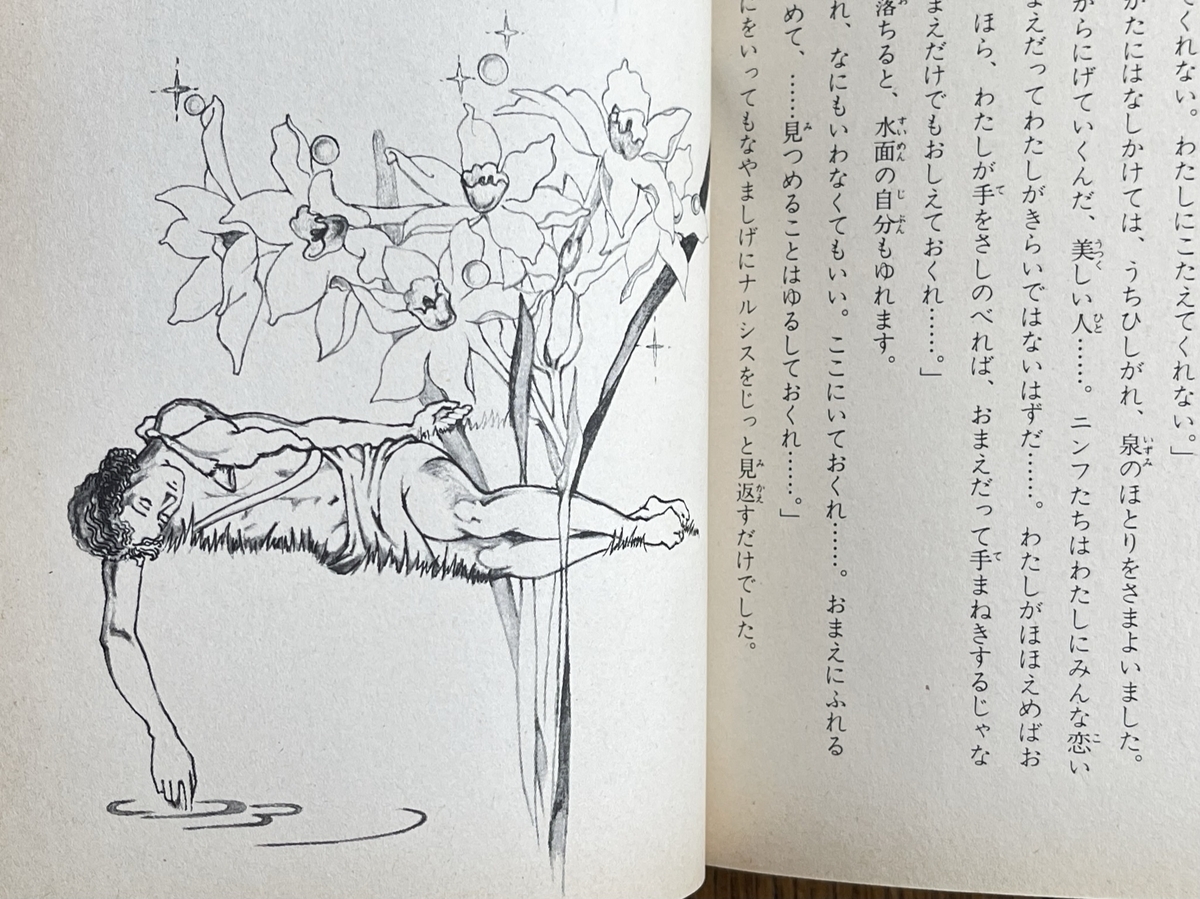 てくれない。わたしにこたえてくれない。」
かたにはなしかけては、うちひしがれ、泉のほとりをさまよいました。
からにげていくんだ、美しい人……。ニンフたちはわたしにみんな恋い
まえだってわたしがきらいではないはずだ……。わたしがほほえめばお
ほら、わたしが手をさしのべれば、おまえだって手まねきするじゃな
まえだけでもおしえておくれ……。」
落ちると、水面の自分もゆれます。
れ、なにもいわなくてもいい。ここにいておくれ……。おまえにふれる
めて、……見つめることはゆるしておくれ……。」
にをいってもなやましげにナルシスをじっと見返すだけでした。